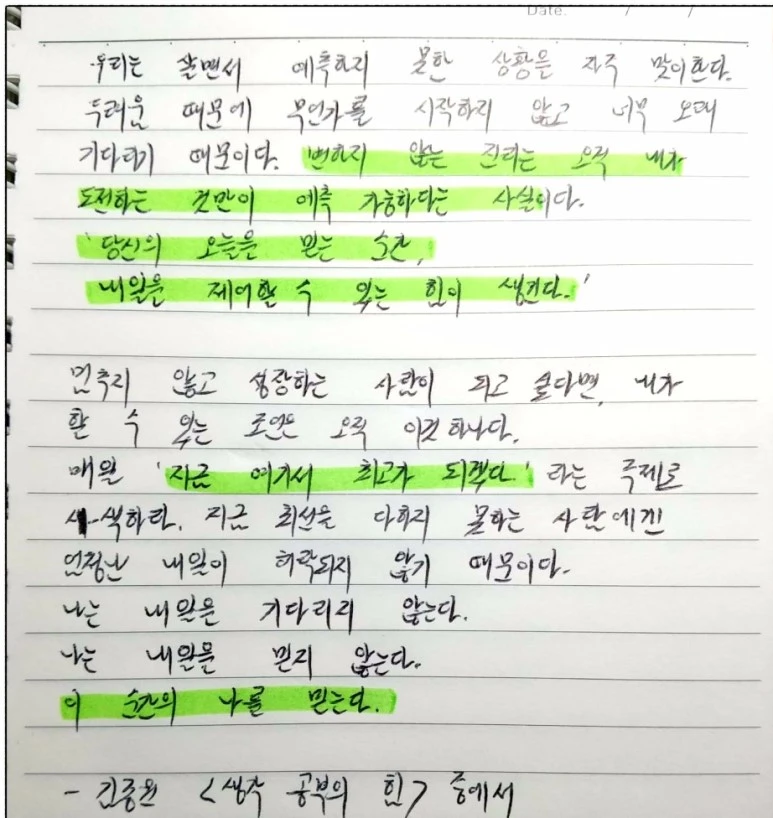 Date. / /
우리는 살면서 예측하지 못한 상황을 자주 맞이한다.
두려움 때문에 무언가를 시작하지 않고 너무 오래
기다리기 때문이다. 변하지 않는 진리는 오직 내가
도전하는 것만이 예측 가능하다는 사실이다.
'당신의 오늘을 믿는 순간,
내일을 제어할 수 있는 힘이 생긴다.'
멈추지 않고 성장하는 사람이 되고 싶다면, 내가
할 수 있는 조언은 오직 이것 하나다.
매일 '지금 여기서 최고가 되겠다.' 라는 주제로
사색하라. 지금 최선을 다하지 못하는 사람에겐
멋진 내일이 허락되지 않기 때문이다.
나는 내일을 기다리지 않는다.
나는 내일을 믿지 않는다.
이 순간의 나를 믿는다.
- 김종원 <생각 공부의 힘> 중에서